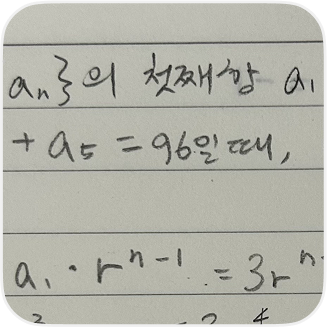 aₙ}의 첫째항 a₁
+ a₅ = 96일 때,
a₁ · rⁿ⁻¹ = 3rⁿ